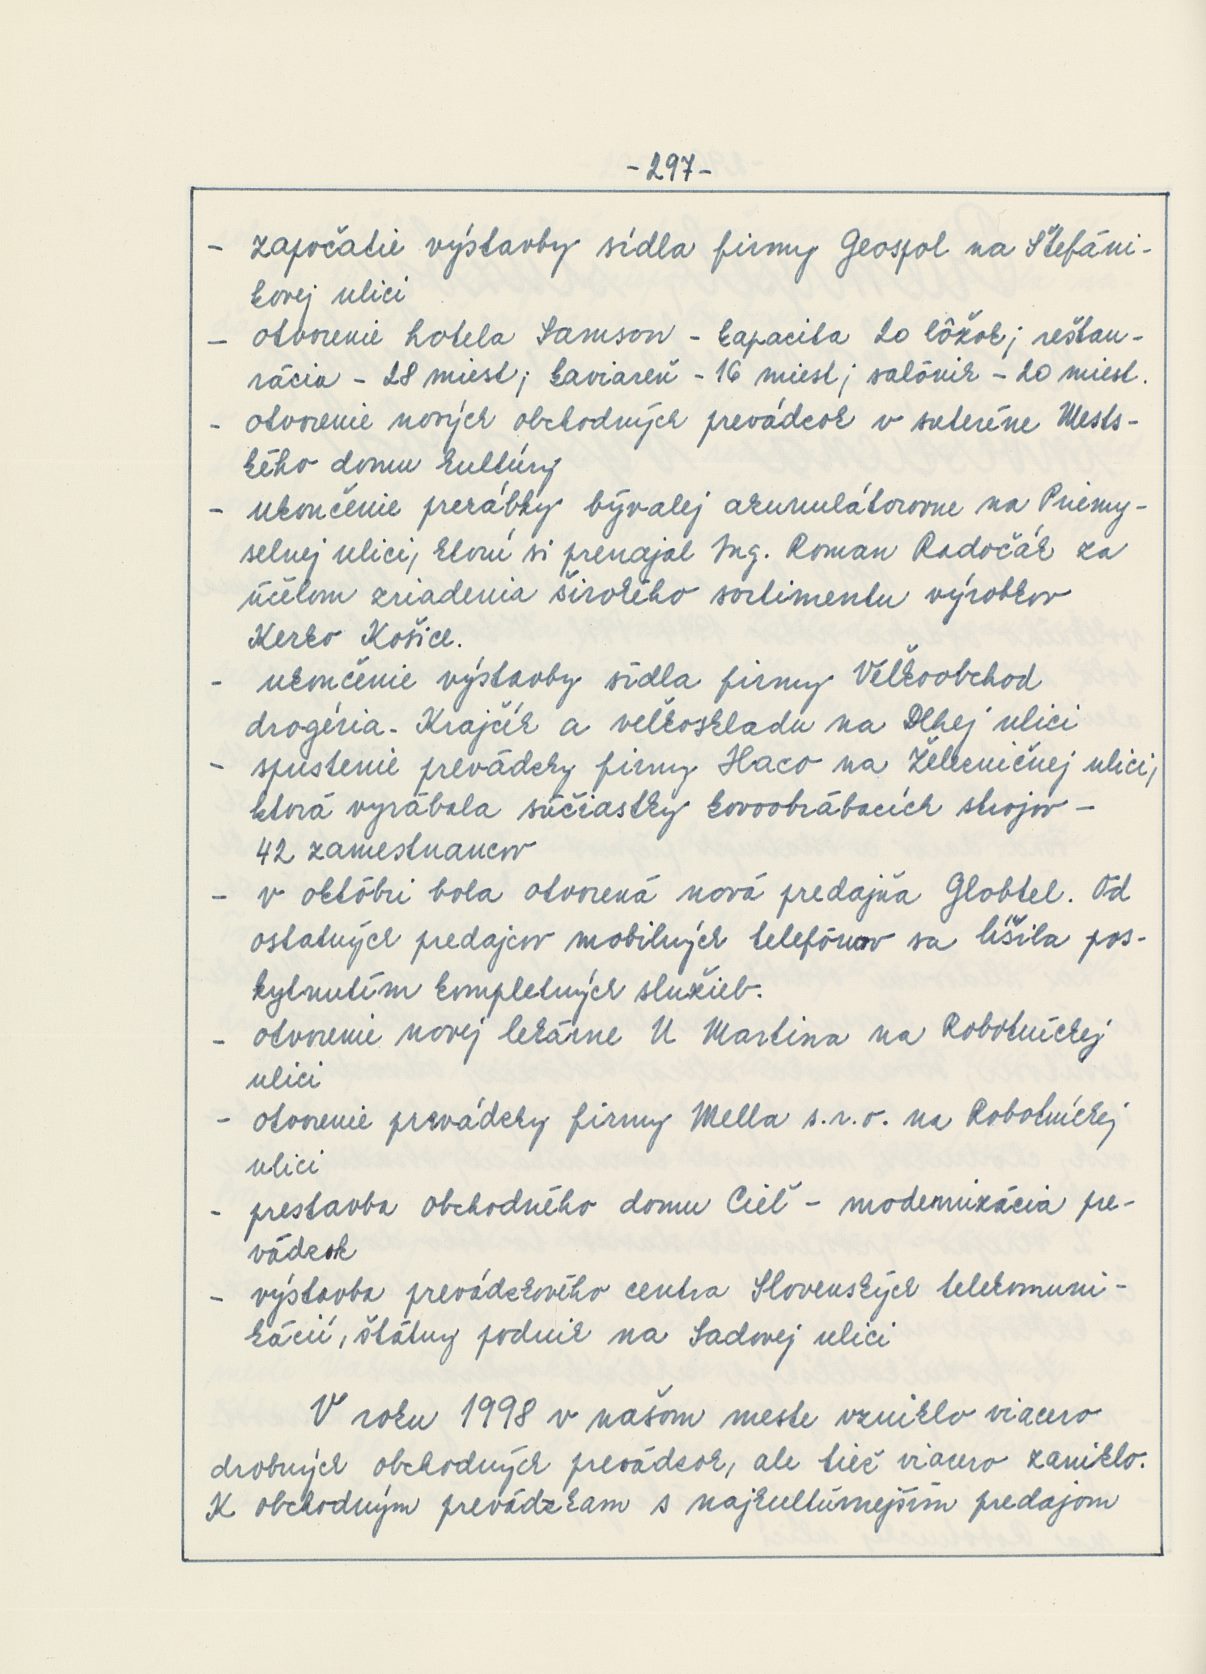 -297-
- započatie výstavby sídla firmy Geospol na Štefáni-
kovej ulici
- otvorenie hotela Samson - kapacita 20 lôžok; reštau-
rácia - 28 miest; kaviareň - 16 miest; salónik - 20 miest.
- otvorenie nových obchodných prevádzok v suteréne Mests-
kého domu kultúry
- ukončenie prerábky bývalej akumulátorovne na Priemy-
selnej ulici, ktorú si prenajal Ing. Roman Radočák za
účelom zriadenia širokého sortimentu výrobkov
Kerko Košice.
- ukončenie výstavby sídla firmy Veľkoobchod
drogéria - Krajčík a veľkoskladu na Dlhej ulici
- spustenie prevádzky firmy Haco na Železničnej ulici,
ktorá vyrábala súčiastky kovoobrábacích strojov -
42 zamestnancov
- v októbri bola otvorená nová predajňa Globtel. Od
ostatných predajcov mobilných telefónov sa líšila pos-
kytnutím kompletných služieb.
- otvorenie novej lekárne U Martina na Robotníckej
ulici
- otvorenie prevádzky firmy Mella s.r.o. na Robotníckej
ulici
- prestavba obchodného domu Cieľ - modernizácia pre-
vádzok
- výstavba prevádzkového centra Slovenských telekomuni-
kácií, štátny podnik na Sadovej ulici
V roku 1998 v našom meste vzniklo viacero
drobných obchodných prevádzok, ale tiež viacero zaniklo.
K obchodným prevádzkam s najkultúrnejším predajom